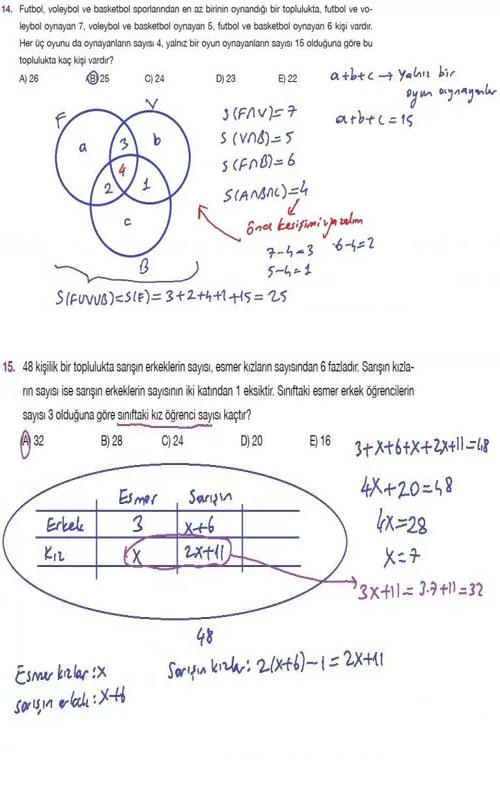 14. Futbol, voleybol ve basketbol sporlarından en az birinin oynandığı bir toplulukta, futbol ve vo-
leybol oynayan 7, voleybol ve basketbol oynayan 5, futbol ve basketbol oynayan 6 kişi vardır.
Her üç oyunu da oynayanların sayısı 4, yalnız bir oyun oynayanların sayısı 15 olduğuna göre bu
toplulukta kaç kişi vardır?
A) 26 B) 25 C) 24 D) 23 E) 22
a+b+c → Yalnız bir
oyun oynayanlar
a+b+c=15
F V
a 3 b
4
2 1
c
B
S(F∩V)=7
S(V∩B)=5
S(F∩B)=6
S(A∩B∩C)=4
Önce kesişimi yazalım
7-4=3 6-4=2
5-4=1
S(FUVUB)=S(E)=3+2+4+1+15=25
15. 48 kişilik bir toplulukta sarışın erkeklerin sayısı, esmer kızların sayısından 6 fazladır. Sarışın kızla-
rın sayısı ise sarışın erkeklerin sayısının iki katından 1 eksiktir. Sınıftaki esmer erkek öğrencilerin
sayısı 3 olduğuna göre sınıftaki kız öğrenci sayısı kaçtır?
A) 32 B) 28 C) 24 D) 20 E) 16
3+x+6+x+2x+11=48
4x+20=48
4x=28
x=7
3x+11=3.7+11=32
Esmer Sarışın
Erkek 3 x+6
Kız x 2x+11
48
Esmer kızlar:x
sarışın erkek:x+6
Sarışın kızlar: 2(x+6)-1=2x+11